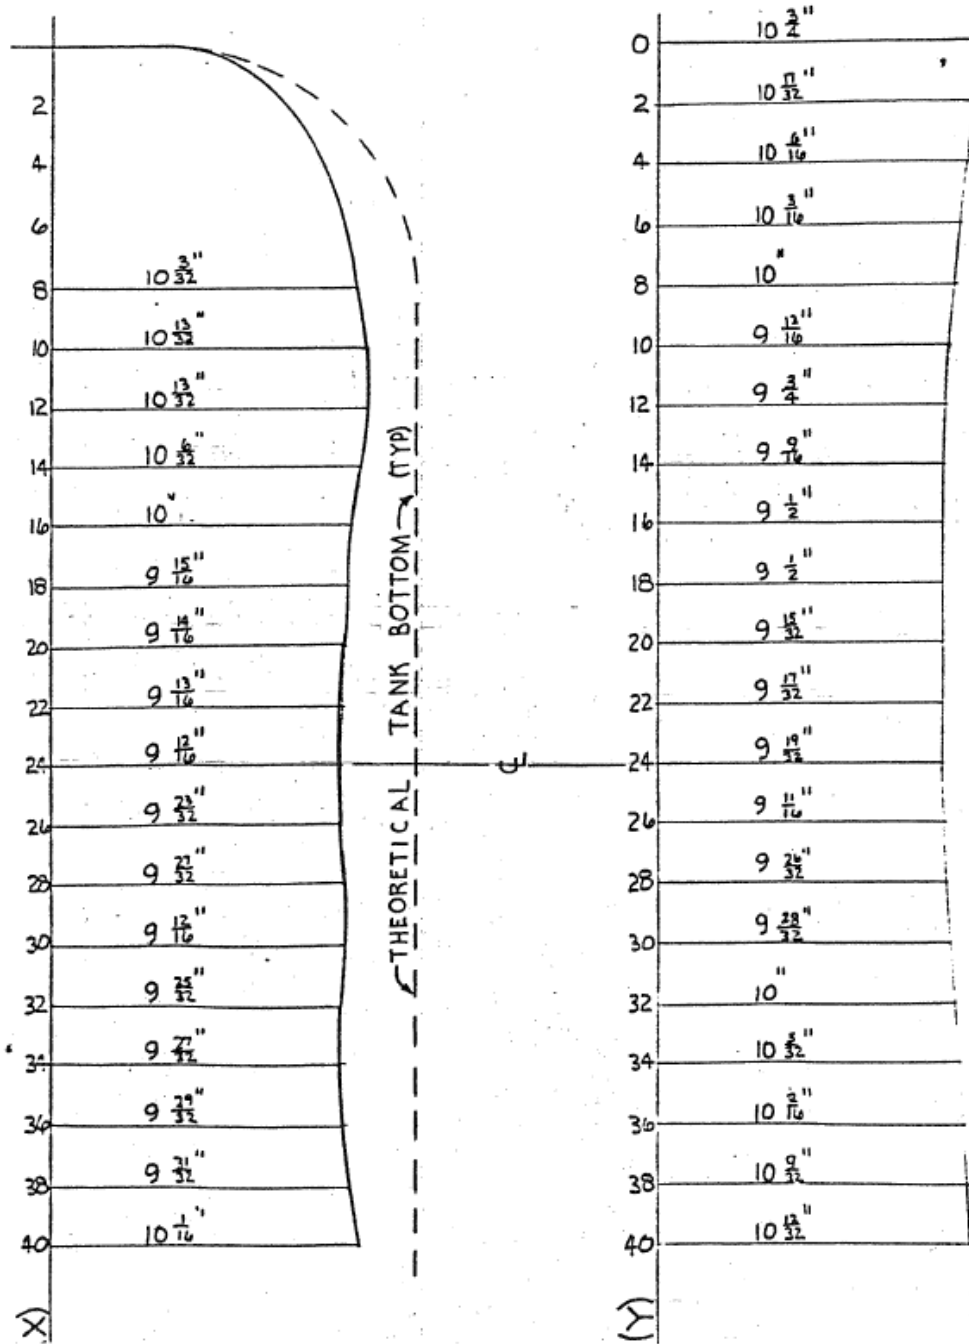 2
4
6
8 10 3/32"
10 10 13/32"
12 10 13/32"
14 10 6/32"
16 10"
18 9 15/16"
20 9 14/16"
22 9 13/16"
24 9 12/16"
26 9 23/32"
28 9 27/32"
30 9 12/16"
32 9 25/32"
34 9 27/32"
36 9 29/32"
38 9 31/32"
40 10 1/16"
(X)
THEORETICAL TANK BOTTOM (TYP)
℄
0 10 3/4"
2 10 17/32"
4 10 6/16"
6 10 3/16"
8 10"
10 9 12/16"
12 9 3/4"
14 9 9/16"
16 9 1/2"
18 9 1/2"
20 9 15/32"
22 9 17/32"
24 9 19/32"
26 9 11/16"
28 9 26/32"
30 9 28/32"
32 10"
34 10 5/32"
36 10 2/16"
38 10 9/32"
40 10 12/32"
(Y)